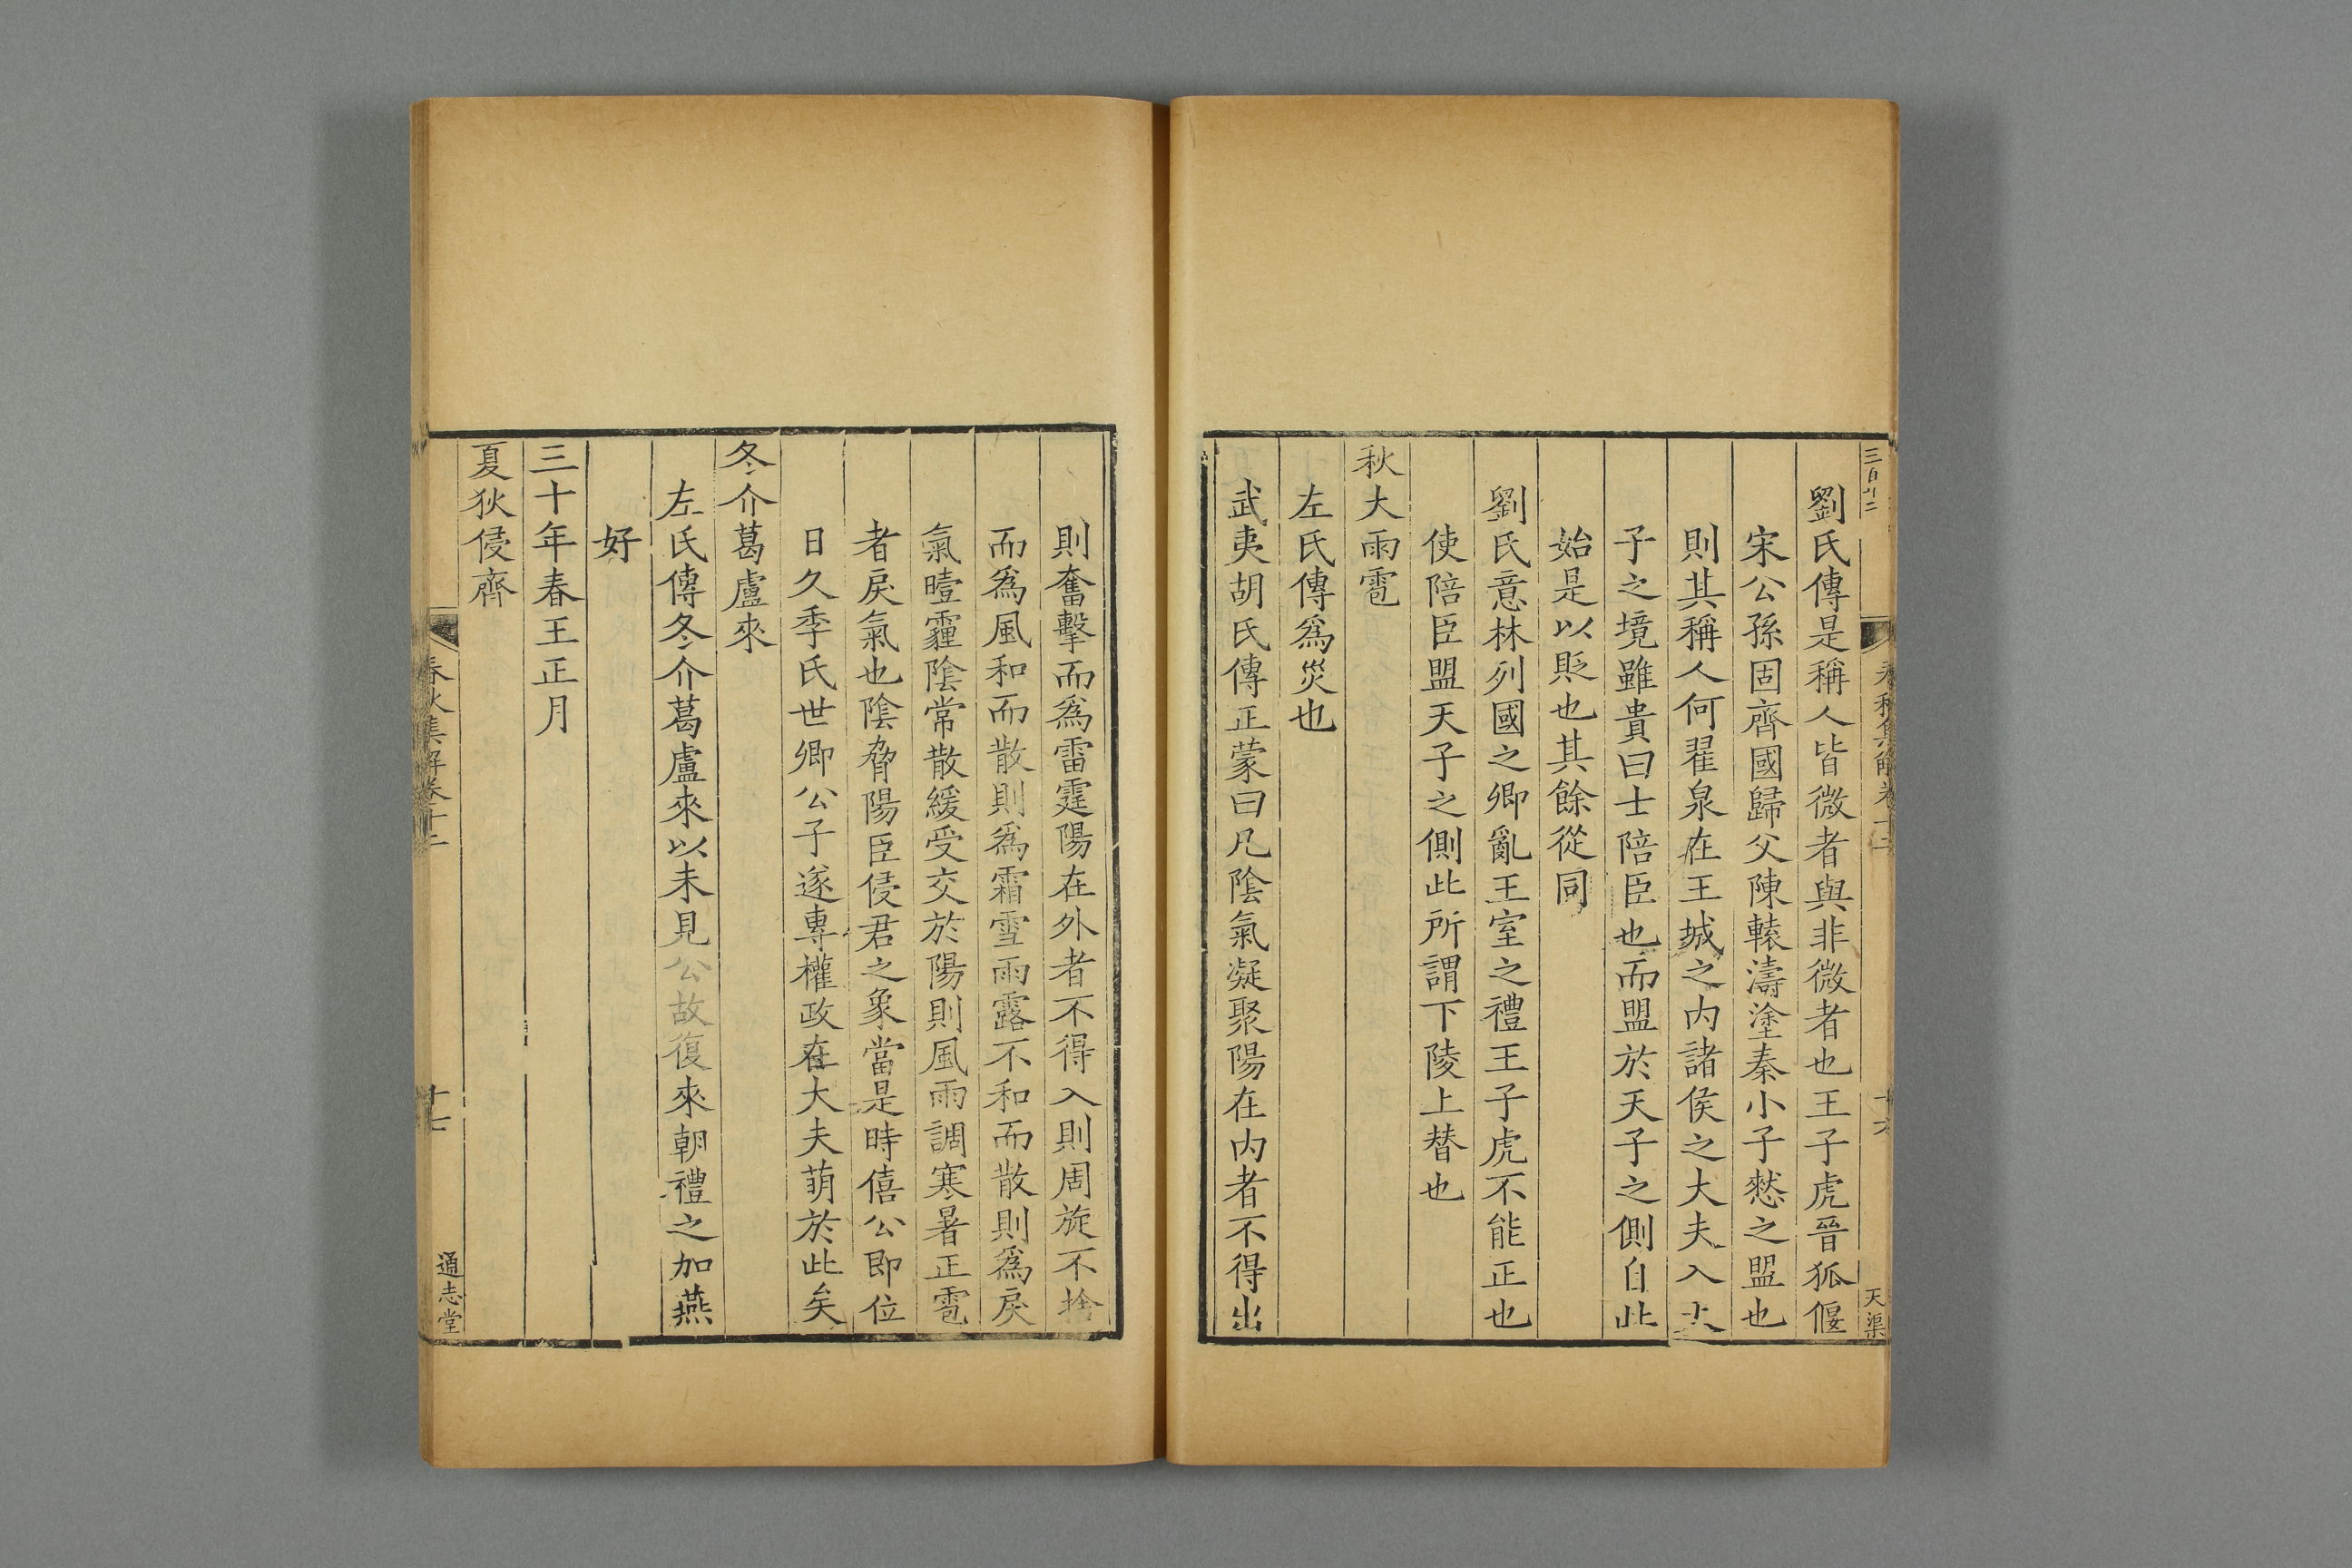 三百廿二
春秋集解卷十二
十六
天渠
劉氏傳是稱人皆微者與非微者也王子虎晉狐偃
宋公孫固齊國歸父陳轅濤塗秦小子憖之盟也
則其稱人何翟泉在王城之内諸侯之大夫入
子之境雖貴曰士陪臣也而盟於天子之側自此
始是以貶也其餘從同
劉氏意林列國之卿亂王室之禮王子虎不能正也
使陪臣盟天子之側此所謂下陵上替也
秋大雨雹
左氏傳爲災也
武夷胡氏傳正蒙曰凡陰氣凝聚陽在内者不得出
則奮擊而爲雷霆陽在外者不得入則周旋不捨
而爲風和而散則爲霜雪雨露不和而散則爲戾
氣曀霾陰常散緩受交於陽則風雨調寒暑正雹
者戾氣也陰脅陽臣侵君之象當是時僖公即位
日久季氏世卿公子遂專權政在大夫萌於此矣
冬介葛盧來
左氏傳冬介葛盧來以未見公故復來朝禮之加燕
好
三十年春王正月
夏狄侵齊
春秋集解卷十二
十七
通志堂